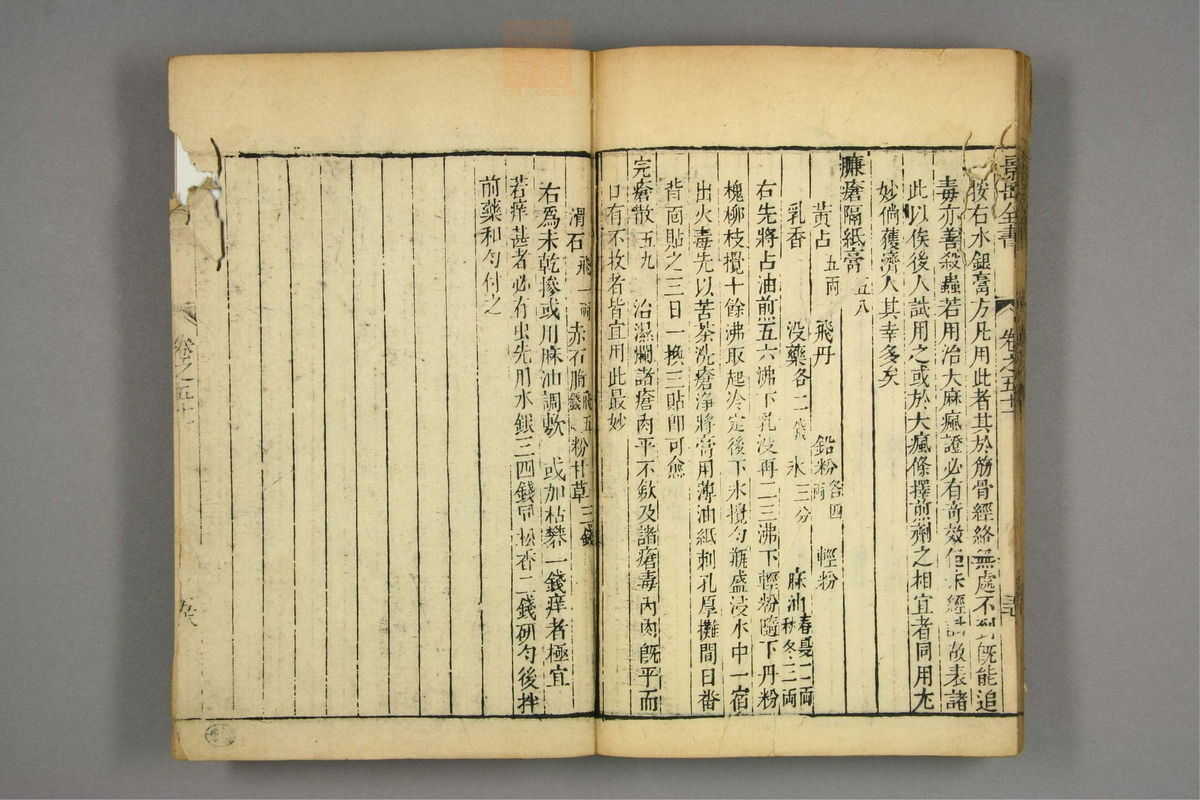 景岳全書 卷之五十一
一按右水銀膏方凡用此者其於筋骨經絡無處不到既能追
毒亦善殺蟲若用治大麻瘋證必有奇效但未經試故表諸
此以俟後人試用之或於大瘋條擇煎劑之相宜者同用尤
妙倘獲濟人其幸多矣
臁瘡隔紙膏五八
黃占五兩 飛丹 鉛粉各四兩 輕粉
乳香 没藥各二錢 氷三分 麻油春夏二兩秋冬三兩
右先將占油煎五六沸下乳没再二三沸下輕粉隨下丹粉
槐柳枝攪十餘沸取起冷定後下氷攪勻瓶盛浸水中一宿
出火毒先以苦茶洗瘡淨將膏用薄油紙刺孔厚攤間日番
背面貼之三日一換三貼卽可愈
完瘡散五九 治濕爛諸瘡肉平不歛及諸瘡毒内肉既平而
口有不收者皆宜用此最妙
滑石飛一兩 赤石脂飛五錢 粉甘草三錢
右爲末乾摻或用麻油調敷 或加枯礬一錢痒者極宜
若痒甚者必有虫先用水銀三四錢同松香二錢研勻後拌
前藥和勻付之
卷之五十一